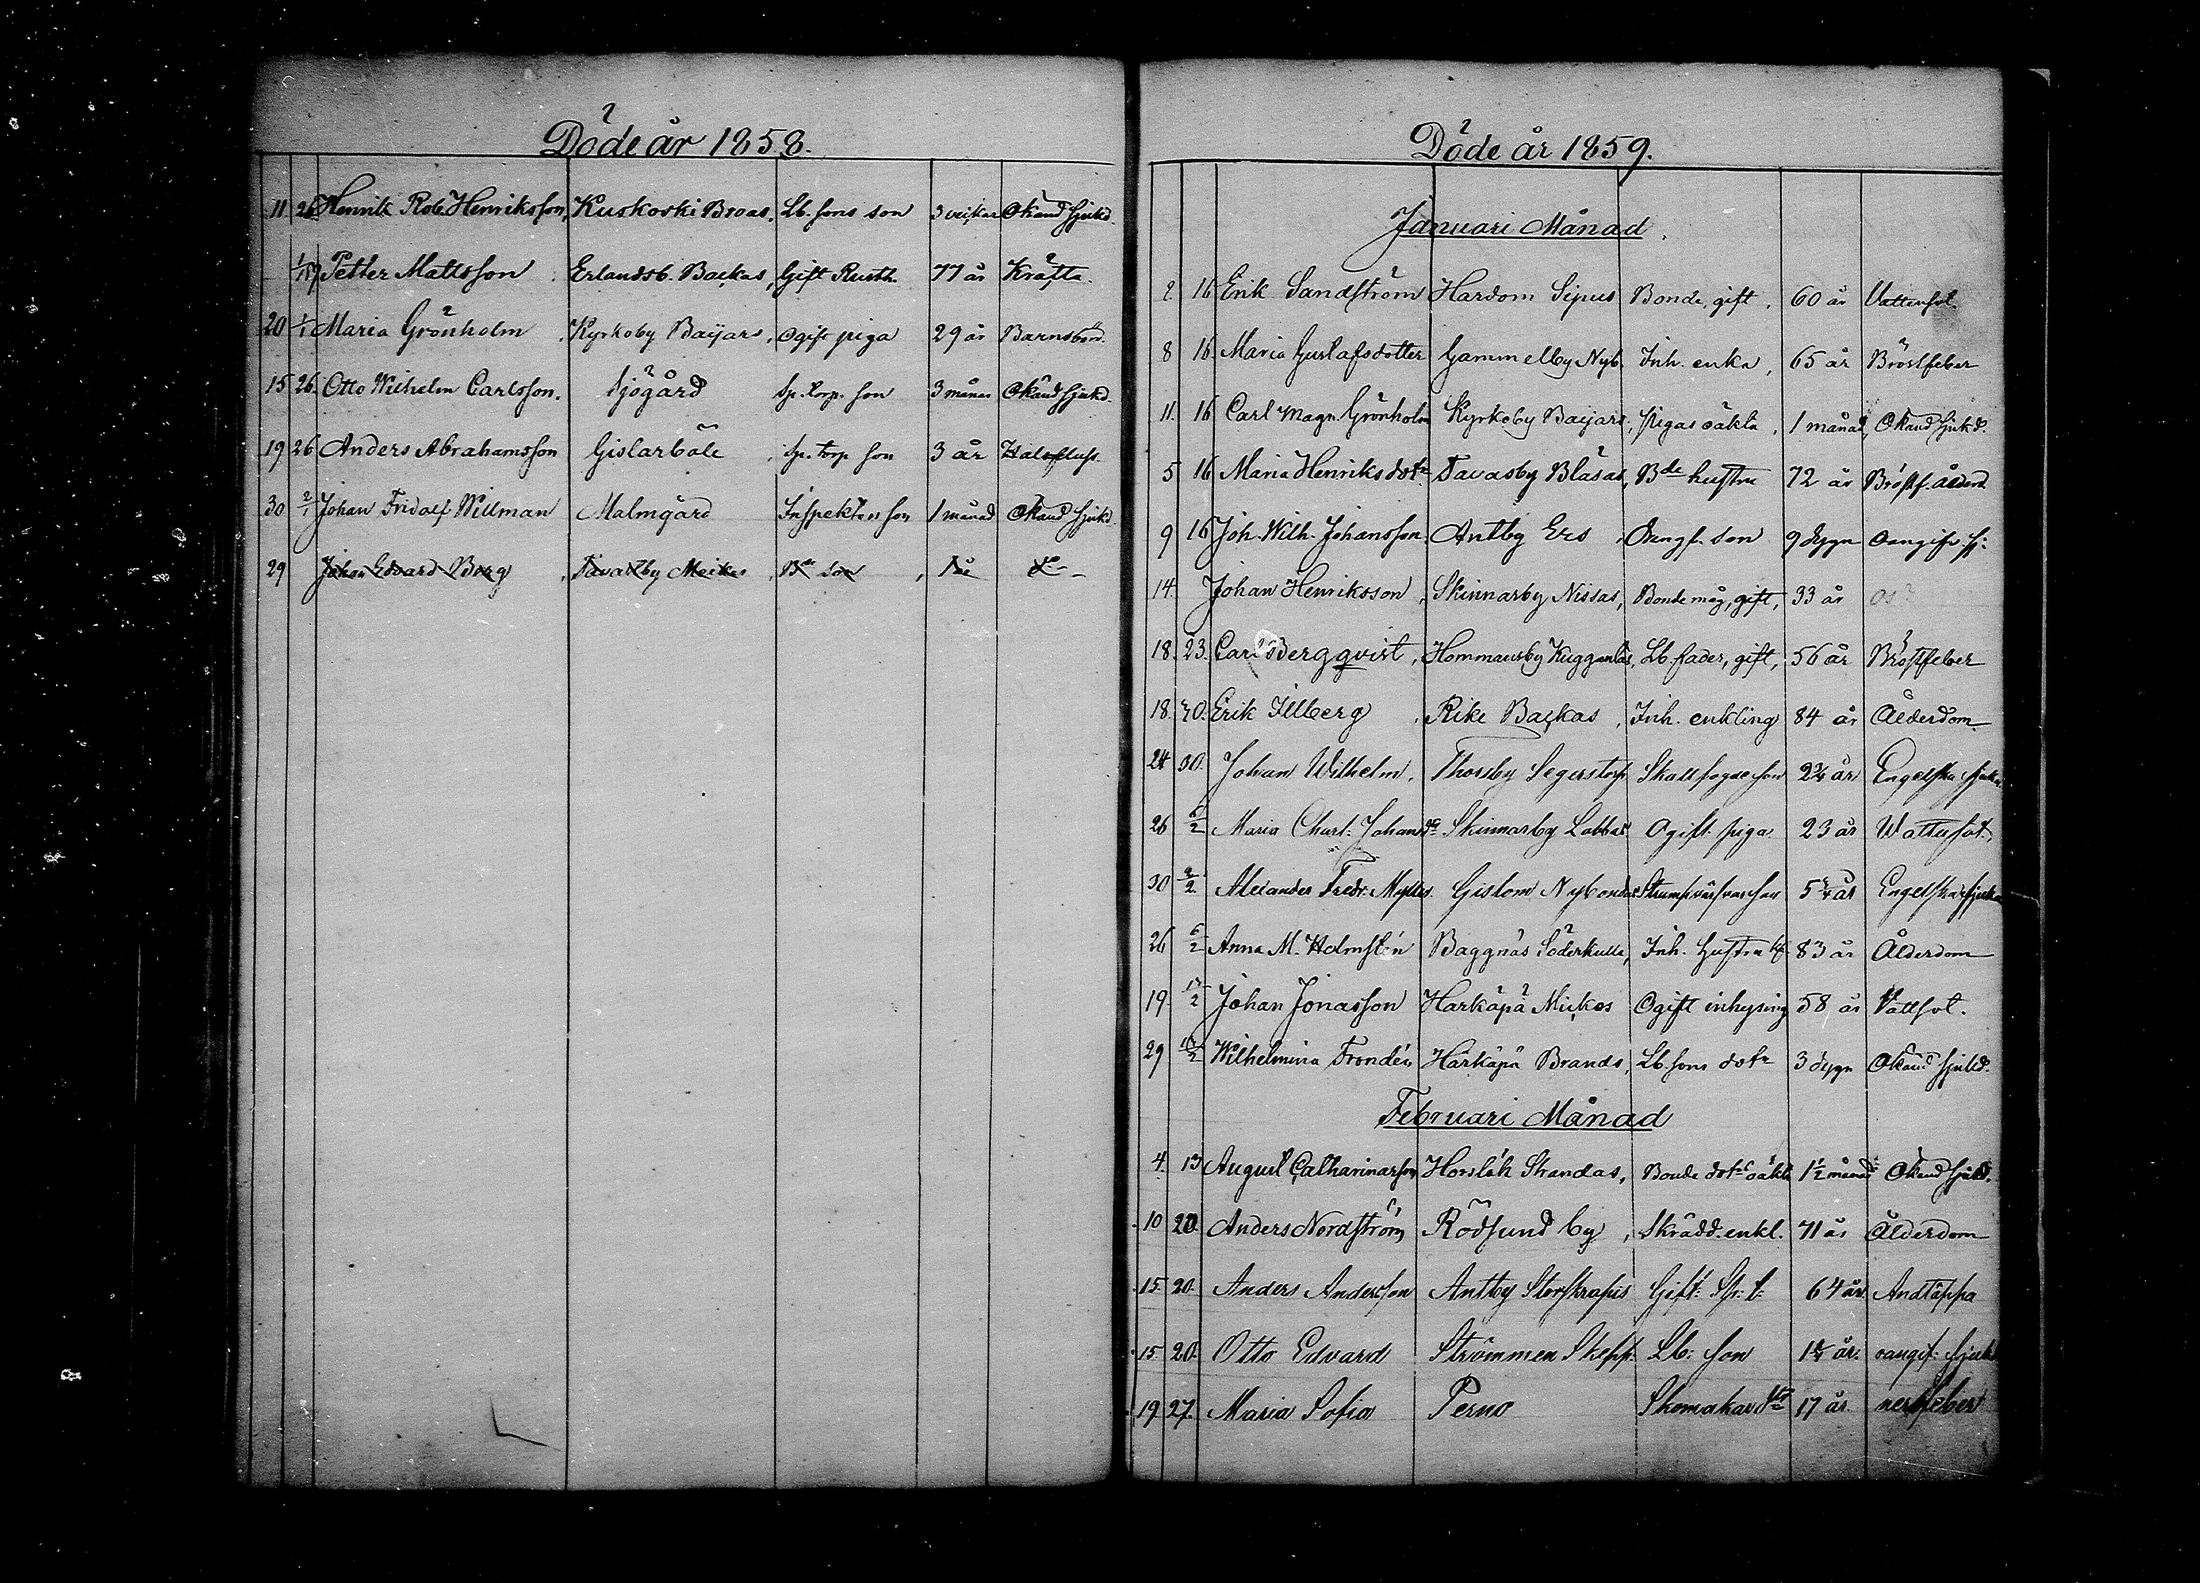 Döde år 1858.
11 26 Henrik Rob. Henriksson, Kuskoski Broas, Lb. sons son 3 veckor Okänd sjukd.
1/19 Petter Mattsson Erlandsb. Backas, Gift Rusth. 77 år Kräfta.
20 1/1 Maria Grönholm Kyrkoby Baijars, Ogift piga 29 år Barnsbörd.
15 26. Otto Wilhelm Carlsson. Sjögård Sp. torp. son 3 månar Okänd sjukd.
19 26 Anders Abrahamsson Gislarböle Sp. torp son 3 år Halsfluss.
30 2/1 Johan Fridolf Willman Malmgård Inspektors son 1 månad Okänd sjukd.
29 Johan Edvard Berg, Tavastby Meikas, Bde son, 1 år do
Döde år 1859.
Januari Månad.
2. 16 Erik Sandström Hardom Sipus Bonde, gift, 60 år Vattensot.
8 16. Maria Gustafsdotter Gammelby Nyb. Inh. enka, 65 år Bröstfeber
11. 16 Carl Magn. Grönholm Kyrkoby Baijars, pigas oäkta, 1 månad, Okänd sjukd.
5 16 Maria Henriksdotr Tavasby Blasas, Bde hustru 72 år Bröstf. ålderd.
9 16 Joh. Wilh. Johansson Antby Ers, Drengs son 9 dygn Oangifv. sj.
14. Johan Henriksson, Skinnarby Nissas, Bonde måg, gift, 33 år
18. 23. Carl Bergqvist, Hommansby Kuggas, Lb. fader, gift, 56 år Bröstfeber
18. 30. Erik Illberg, Rike Backas, Inh. enkling 84 år Ålderdom
24 30. Johan Wilhelm, Thorsby Segerstorp Skallfogde son 2¾ år Engelska sjukan
26 6/2 Maria Charl: Johansdr Skinnarby Labbas Ogift piga 23 år Wattusot.
30 9/2 Alexander Fredr. Gislom Nybondas son 5¾ år Engelska sjukan
26 6/2 Anna M. Holmstén Baggnäs Söderkulla, Inh. hustru 83 år Ålderdom
19. 13/2 Johan Jonasson Härkäpä Mickos Ogift inhysing 58 år Vattsot.
29 13/2 Wilhelmina Frondén Härkäpä Brands, Lb. sons dotr 3 dygn Okänd sjukd.
Februari Månad
4. 13 August Catharinason Horslök Strandas, Bonde dotrs oäkta 1½ månad Okänd sjukd.
10 20 Anders Nordström Rödsund by, Skrädd. enkl. 71 år Ålderdom
15. 20. Anders Andersson Antby Storskrapis Gift: Sp: t: 64 år Andtäppa
15. 20. Otto Edvard Strömmen Skepp. Lb: son 1¾ år. oangif: sjuk
19. 27. Maria Sofia Perno Skomakar dtr 17 år nerffeber